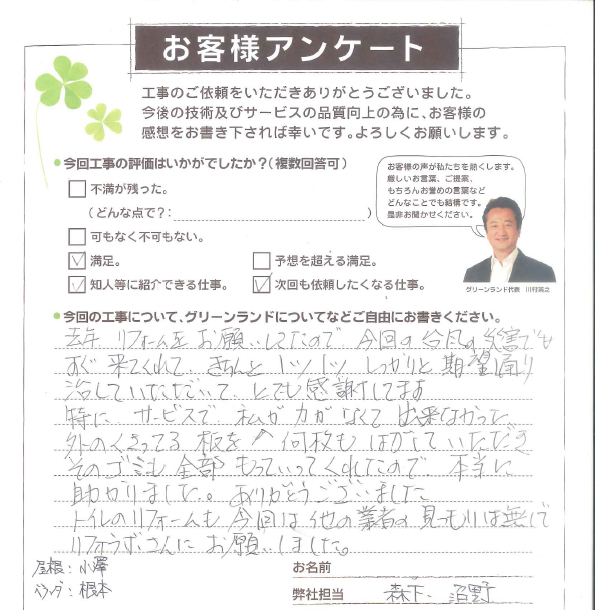 お客様アンケート
工事のご依頼をいただきありがとうございました。
今後の技術及びサービスの品質向上の為に、お客様の
感想をお書き下されば幸いです。よろしくお願いします。
●今回工事の評価はいかがでしたか?(複数回答可)
不満が残った。
(どんな点で?: )
可もなく不可もない。
満足。
予想を超える満足。
知人等に紹介できる仕事。
次回も依頼したくなる仕事。
お客様の声が私たちを熱くします。
厳しいお言葉、ご提案、
もちろんお誉めの言葉など
どんなことでも結構です。
是非お聞かせください。
グリーンランド代表
●今回の工事について、グリーンランドについてなどご自由にお書きください。
去年 リフォームを お願いしてたので 今回の 台風の災害でも
すぐ 来てくれて、きちんと 1ツ1ツ しっかりと 期望通り
治していただいて、とても感謝してます
特に サービスで 私が力がなくて 出来なかった
外のくさってる 板を 何枚も はがして いただき
そのゴミも 全部 もっていってくれたので 本当に
助かりました。ありがとうございました
トイレのリフォームも 今回は他の業者の 見つもりは無しで
リフォラボさんに お願いしました。
屋根:小澤
ベランダ:根本
お名前
弊社担当 森下、沼野